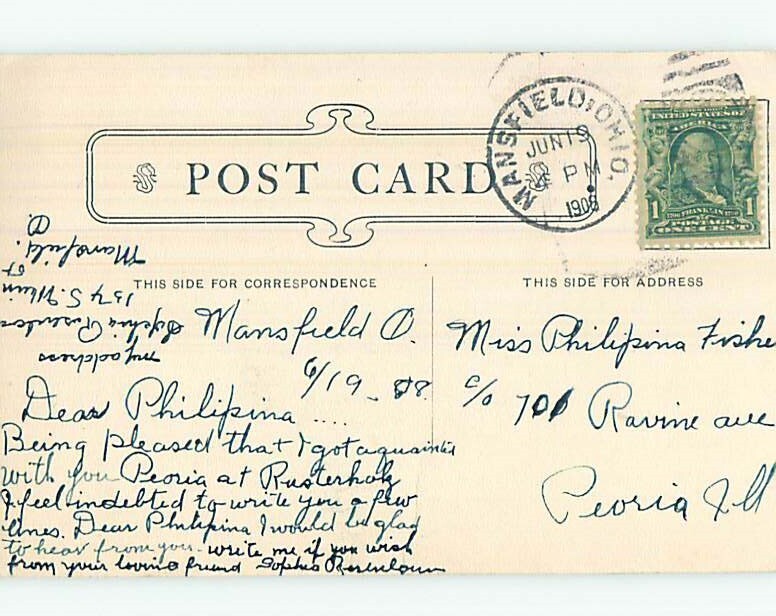 POST CARD
MANSFIELD, OHIO.
JUN 19
PM
1908
UNITED STATES OF
AMERICA
1 FRANKLIN 1
ONE CENT
THIS SIDE FOR CORRESPONDENCE
THIS SIDE FOR ADDRESS
my address
Sophia
134 S. Main
st
Mansfield.
O.
Mansfield O.
6/19-08.
Dear Philipina ....
Being pleased that I got aquainted
with you Peoria at Rusterholz
I feel indebted to write you a few
lines. Dear Philipina I would be glad
to hear from you. write me if you wish
from your loving friend Sophia Rosenbaum
Miss Philipina Fishe
c/o 701 Ravine ave
Peoria Ill